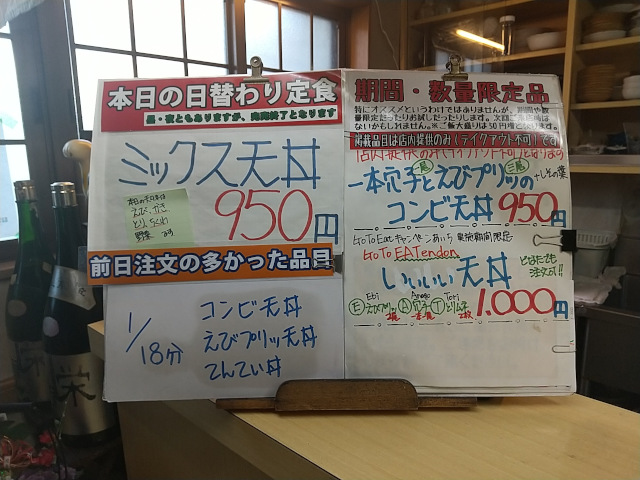 本日の日替わり定食
昼・夜ともありますが、売切終了となります
ミックス天丼
本日の天ぷらは
えび、かき
とり、ちくわ
野菜 です
950円
前日注文の多かった品目
1/18分
コンビ天丼
えびプリッ天丼
てんてい丼
期間・数量限定品
特にオススメというわけではありませんが、期間や数
量限定だったりお試しだったりします。次回ご来店時は
ないかもしれません。※ご飯大盛りは50円増となります。
掲載品目は店内提供のみ(テイクアウト不可)です
一尾 三尾
一本穴子とえびプリッの +しその葉
コンビ天丼 950円
GoToEatキャンペーンあいち 実施期間限定
GoTo EATendon
いいいい天丼 どなたでも
注文可!!
Ebi Anago Tori
Ⓔえびプリッ Ⓐ穴子 Ⓣとりムネ 1,000円
2尾 一本 2枚
栄